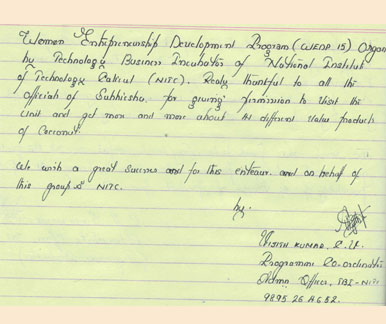 Women Entrepreneurship Development Program (WEDP 15) Organ
by Technology Business Incubator of National Institute
of Technology Calicut (NITC). Really thankful to all the
officials of Subhiksha for giving permission to visit the
unit and get more and more about its different value products
of Coconut.
We wish a great success and for this and on behalf of
this group & NITC.
by
KUMAR.
Programme Co-ordinator
Admn Officer, TBI-NITC.
9895 26